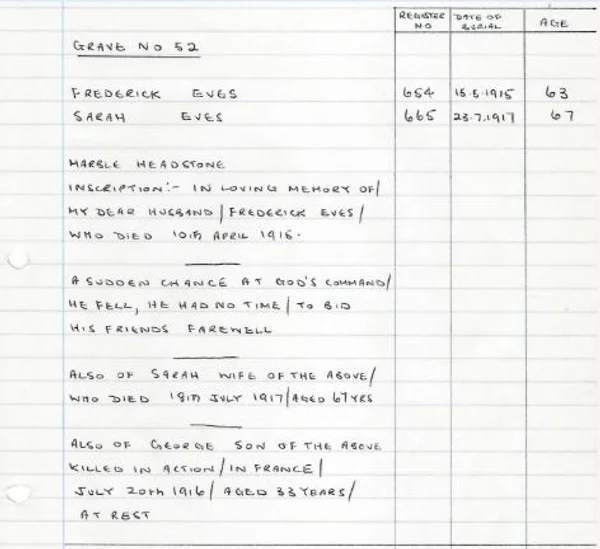 REGISTER NO DATE OF BURIAL AGE
GRAVE NO 52
FREDERICK EVES 654 15.5.1915 63
SARAH EVES 665 23.7.1917 67
MARBLE HEADSTONE
INSCRIPTION:- IN LOVING MEMORY OF/
MY DEAR HUSBAND/FREDERICK EVES/
WHO DIED 10th APRIL 1916.
A SUDDEN CHANCE AT GOD'S COMMAND/
HE FELL, HE HAD NO TIME/TO BID
HIS FRIENDS FAREWELL
ALSO OF SARAH WIFE OF THE ABOVE/
WHO DIED 18th JULY 1917/AGED 67 YRS
ALSO OF GEORGE SON OF THE ABOVE
KILLED IN ACTION/IN FRANCE/
JULY 20th 1916/ AGED 33 YEARS/
AT REST